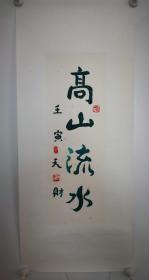 高山流水
壬寅天財